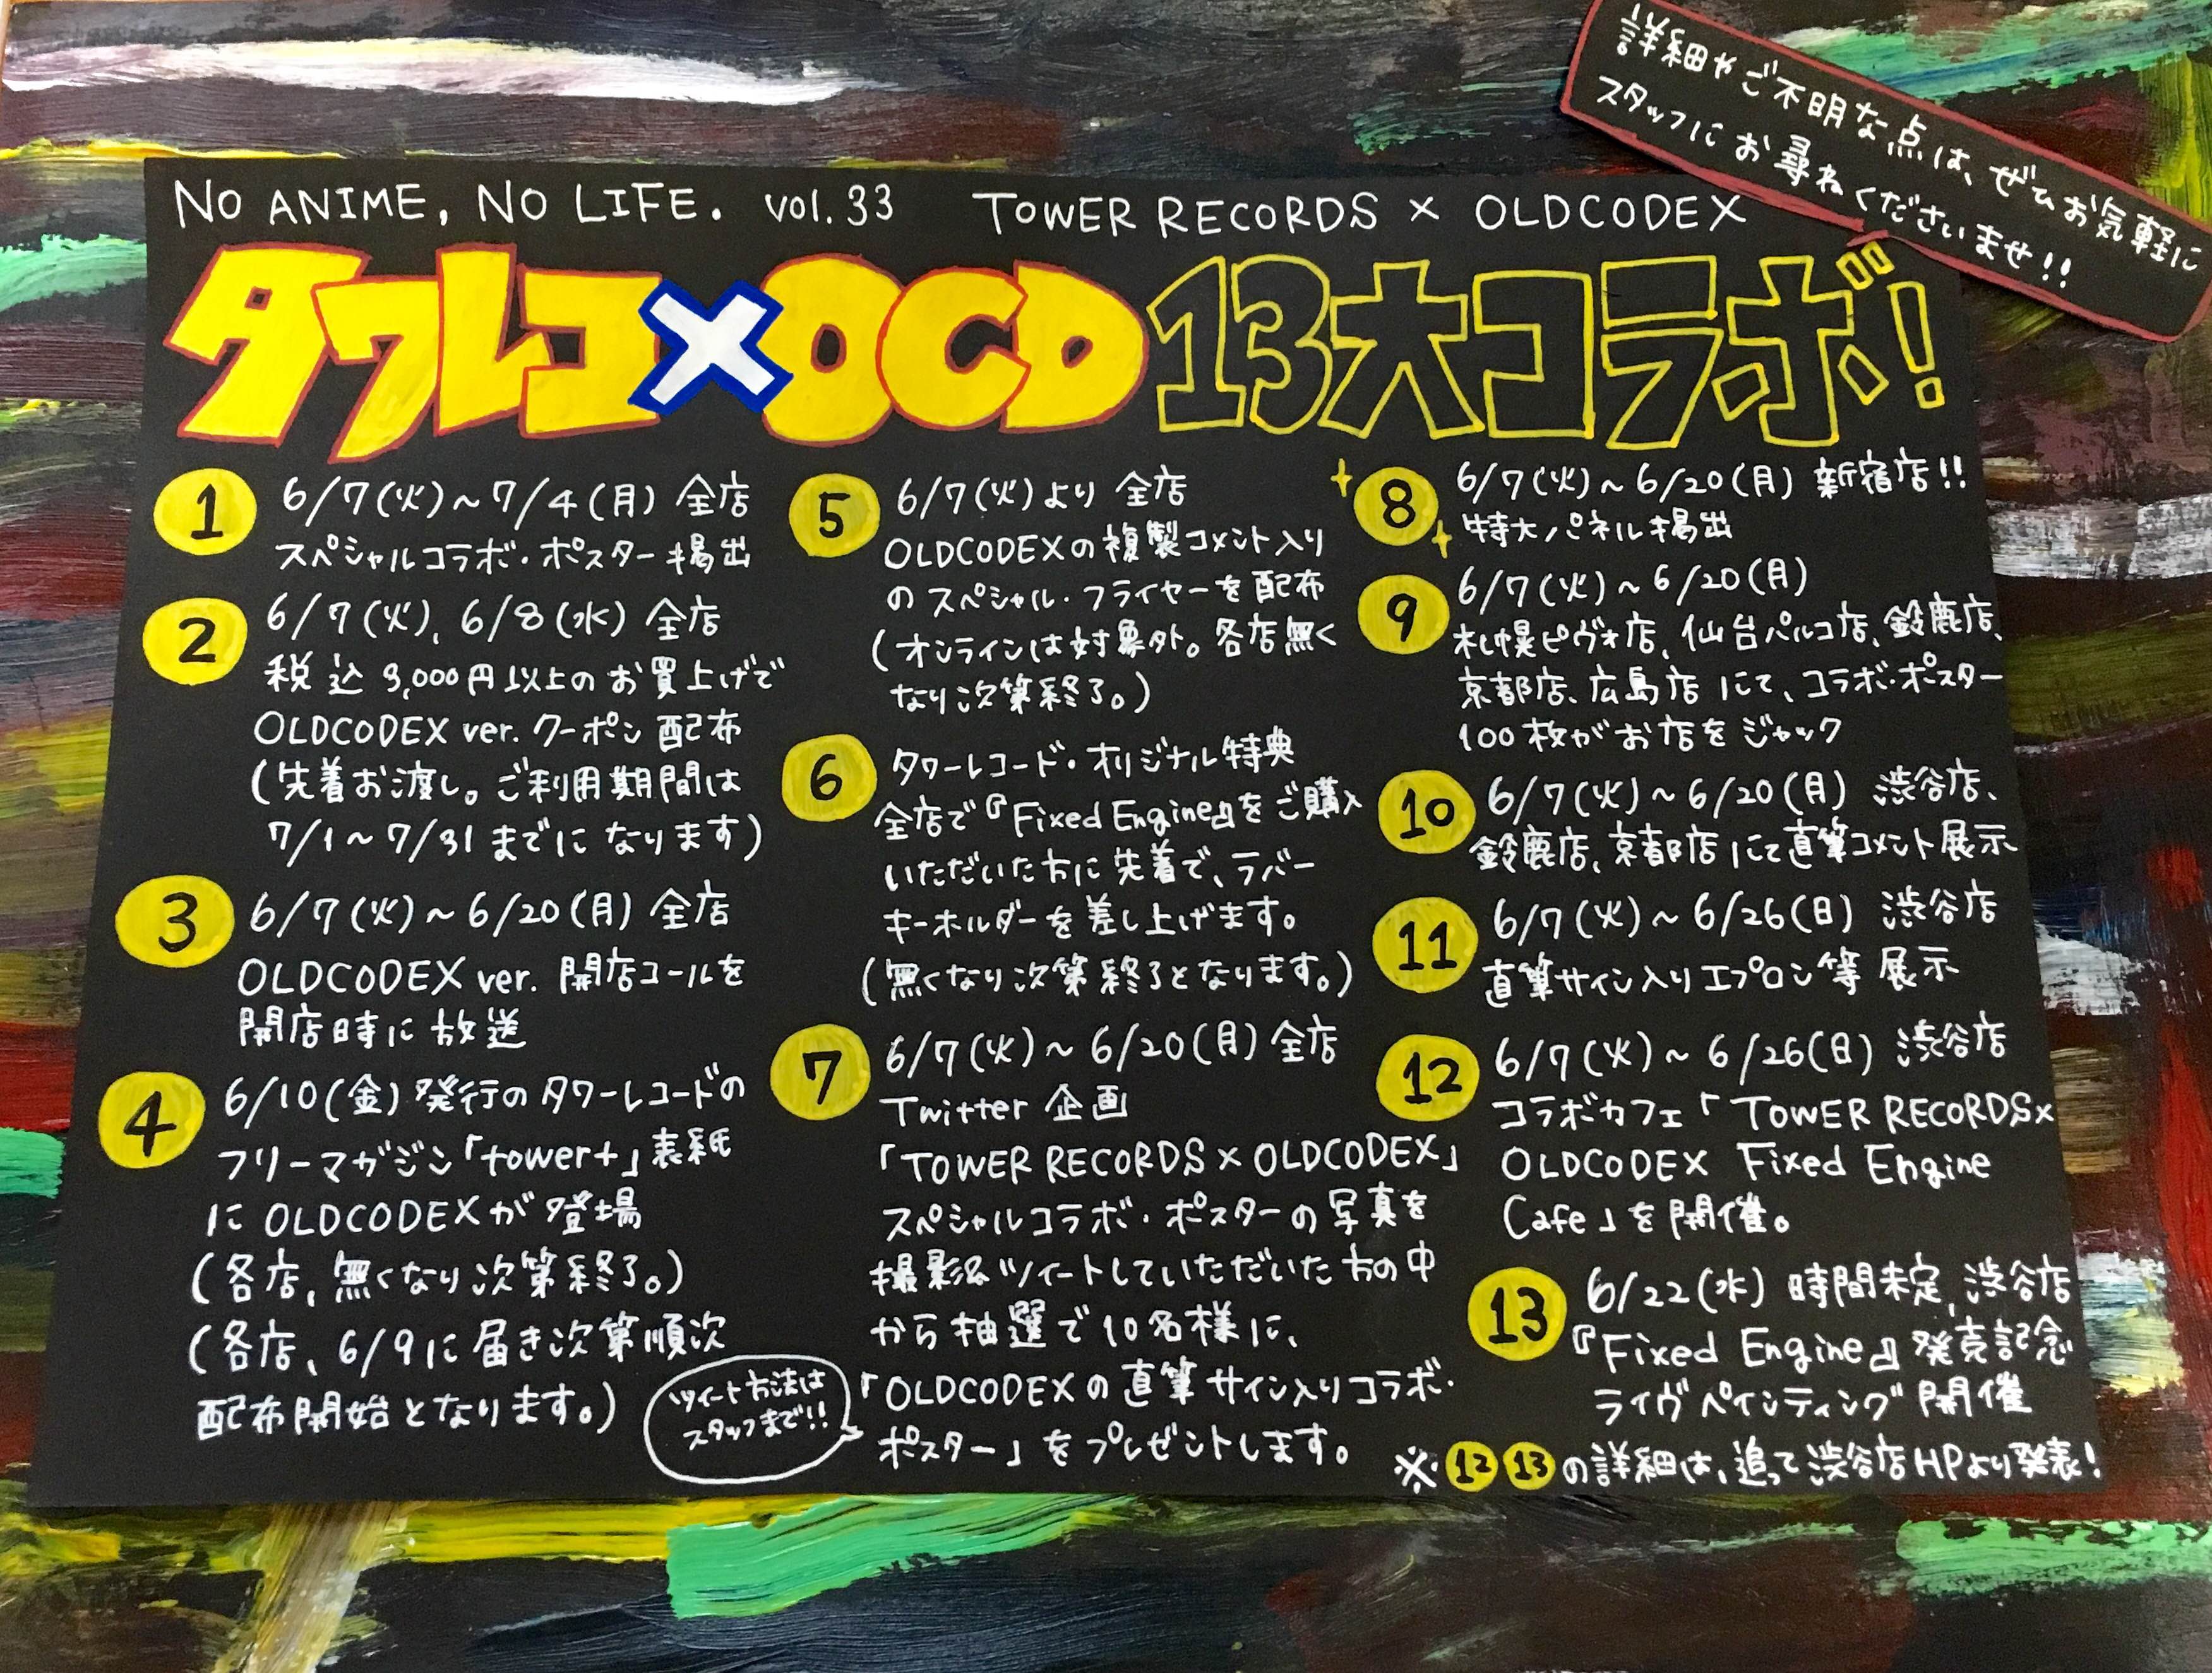 詳細やご不明な点は、ぜひお気軽に
スタッフにお尋ねくださいませ!!
NO ANIME, NO LIFE. vol.33 TOWER RECORDS × OLDCODEX
タワレコ×OCD 13大コラボ!
1 6/7(火)~7/4(月) 全店
スペシャルコラボ・ポスター掲出
2 6/7(火)、6/8(水) 全店
税込3,000円以上のお買上げで
OLDCODEX ver. クーポン配布
(先着お渡し。ご利用期間は
7/1~7/31までになります)
3 6/7(火)~6/20(月) 全店
OLDCODEX ver. 開店コールを
開店時に放送
4 6/10(金)発行のタワーレコードの
フリーマガジン「tower+」表紙
にOLDCODEXが登場
(各店、無くなり次第終了。)
(各店、6/9に届き次第順次
配布開始となります。)
5 6/7(火)より 全店
OLDCODEXの複製コメント入り
のスペシャル・フライヤーを配布
(オンラインは対象外。各店無く
なり次第終了。)
6 タワーレコード・オリジナル特典
全店で『Fixed Engine』をご購入
いただいた方に先着で、ラバー
キーホルダーを差し上げます。
(無くなり次第終了となります。)
7 6/7(火)~6/20(月) 全店
Twitter 企画
「TOWER RECORDS × OLDCODEX」
スペシャルコラボ・ポスターの写真を
撮影&ツイートしていただいた方の中
から抽選で10名様に、
「OLDCODEXの直筆サイン入りコラボ・
ポスター」をプレゼントします。
ツイート方法は
スタッフまで!!
8 6/7(火)~6/20(月) 新宿店!!
特大パネル掲出
9 6/7(火)~6/20(月)
札幌ピヴォ店、仙台パルコ店、鈴鹿店、
京都店、広島店にて、コラボ・ポスター
100枚がお店をジャック
10 6/7(火)~6/20(月) 渋谷店、
鈴鹿店、京都店にて直筆コメント展示
11 6/7(火)~6/26(日) 渋谷店
直筆サイン入りエプロン等 展示
12 6/7(火)~6/26(日) 渋谷店
コラボカフェ「TOWER RECORDS×
OLDCODEX Fixed Engine
Cafe」を開催。
13 6/22(水) 時間未定、渋谷店
『Fixed Engine』発売記念
ライヴペインティング開催
※12 13の詳細は、追って渋谷店HPより発表!